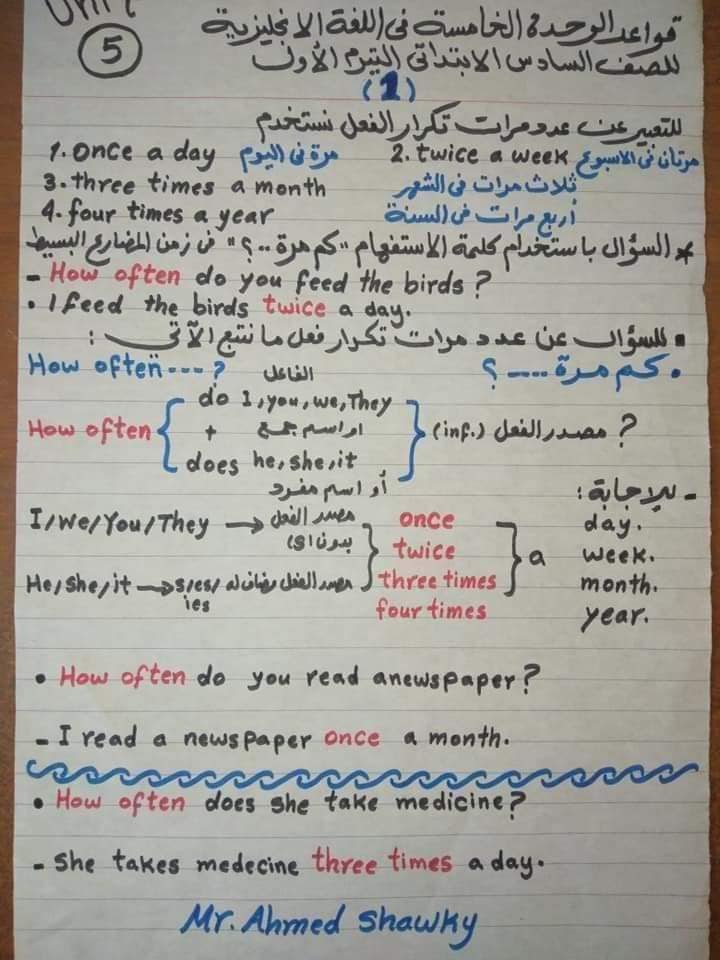 Unit
5
قواعد الوحدة الخامسة فى اللغة الإنجليزية
للصف السادس الابتدائى التيرم الأول
(1)
للتعبير عن عدد مرات تكرار الفعل نستخدم
1. Once a day مرة فى اليوم 2. twice a week مرتان فى الاسبوع
3. three times a month ثلاث مرات فى الشهر
4. four times a year أربع مرات فى السنة
* السؤال باستخدام كلمة الاستفهام "كم مرة ..؟" فى زمن المضارع البسيط
- How often do you feed the birds?
• I feed the birds twice a day.
▪ للسؤال عن عدد مرات تكرار فعل ما نتبع الآتى :
• كم مرة ----؟ How often ---?
الفاعل
do I, you, we, They
How often { + او اسم جمع } مصدر الفعل (inf.) ?
does he, she, it
أو اسم مفرد
- للإجابة :
I/We/You/They → مصدر الفعل once day.
بدون (s) twice a week.
He, She, it → s/es/ مصدر الفعل مضاف له three times month.
ies four times year.
• How often do you read anewspaper?
- I read a newspaper once a month.
• How often does she take medicine?
- She takes medecine three times a day.
Mr. Ahmed Shawky